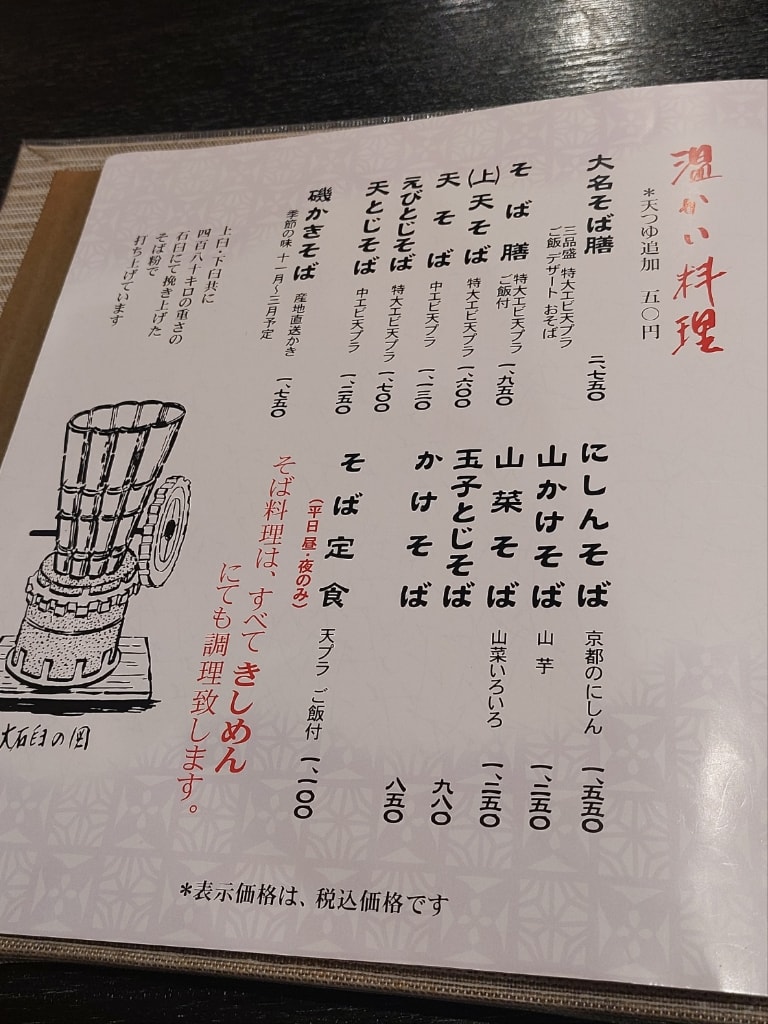 温かい料理
*天つゆ追加 五〇円
大名そば膳
三品盛 特大エビ天プラ
ご飯 デザート おそば
二、七五〇
そば膳
特大エビ天プラ
ご飯付
一、九五〇
(上)天そば 特大エビ天プラ 一、六〇〇
天そば 中エビ天プラ 一、一三〇
えびとじそば 特大エビ天プラ 一、七〇〇
天とじそば 中エビ天プラ 一、二五〇
磯かきそば 産地直送かき
季節の味 十一月〜三月予定
一、七五〇
にしんそば 京都のにしん 一、五五〇
山かけそば 山芋 一、二五〇
山菜そば 山菜いろいろ 一、二五〇
玉子とじそば 九八〇
かけそば 八五〇
そば定食 天プラ ご飯付 一、一〇〇
(平日 昼・夜のみ)
そば料理は、すべてきしめん
にても調理致します。
上臼・下臼共に
四百八十キロの重さの
石臼にて挽き上げた
そば粉で
打ち上げています
大石臼の図
*表示価格は、税込価格です